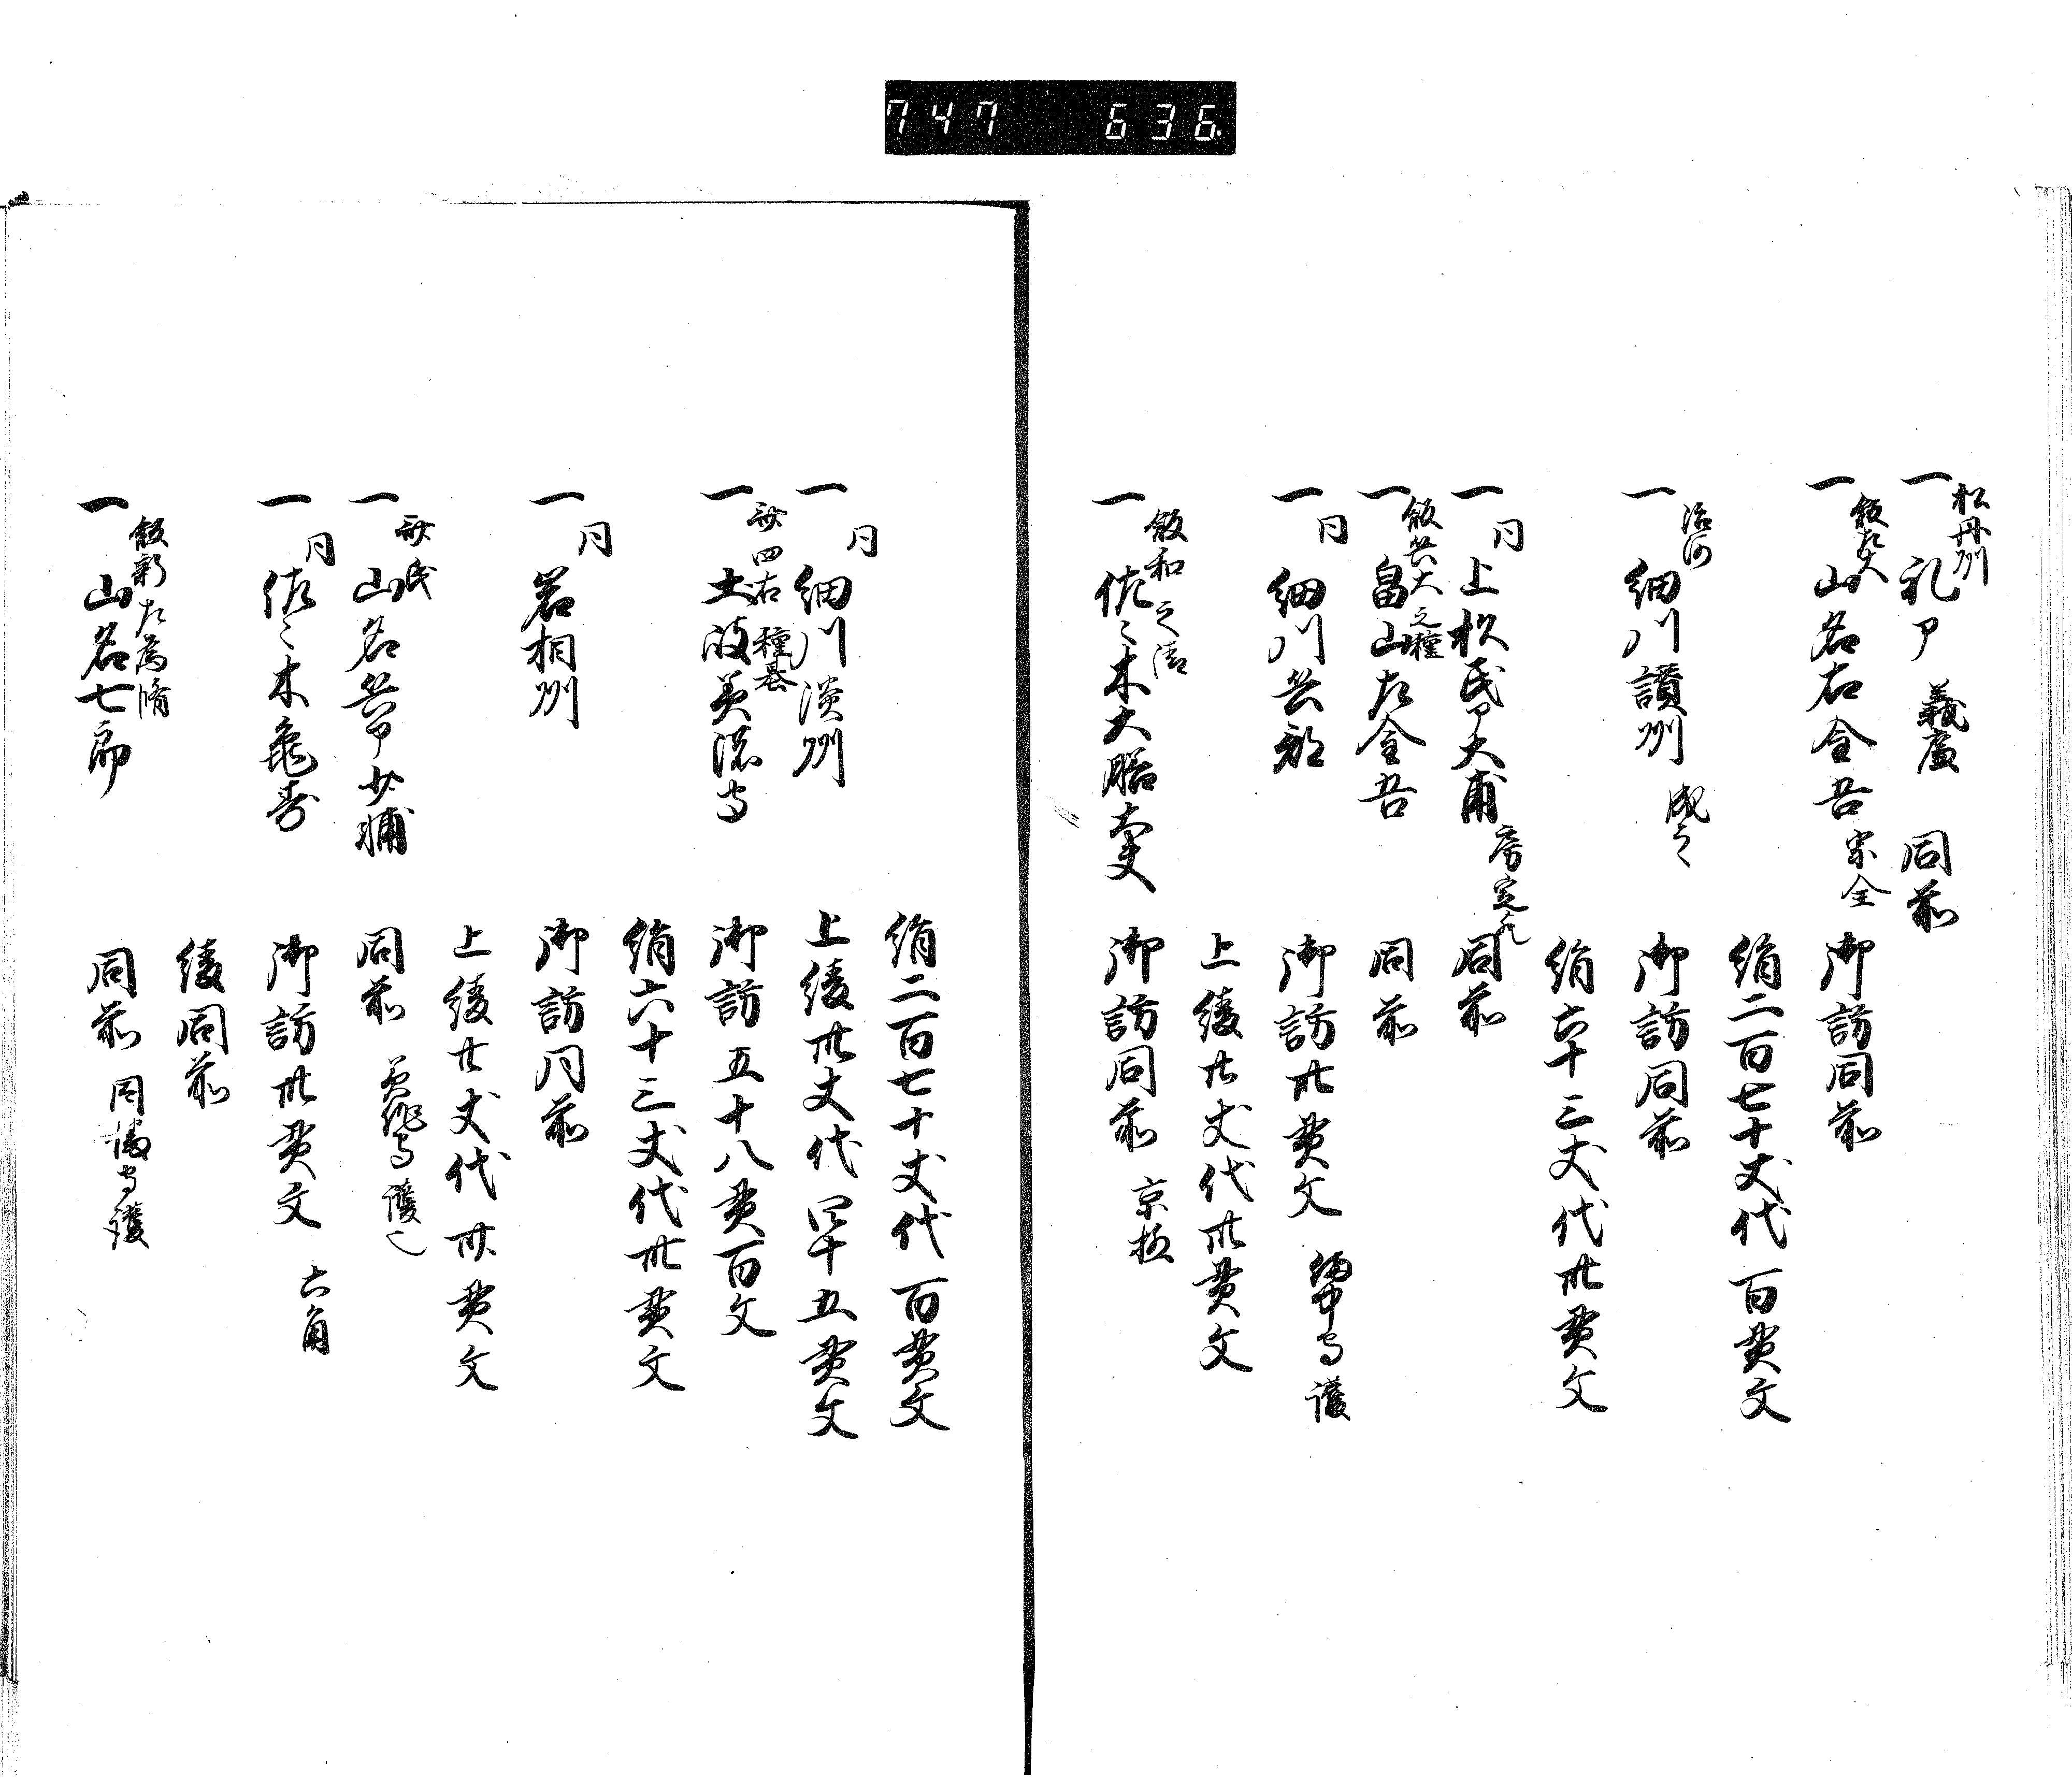 747 636
松丹州
一 礼阝 義廣 同前
飯左大
一 山名右金吾 宗全 御訪同前
絹二百七十丈代 百貫文
治河
一 細川讃州 成之 御訪同前
絹六十三丈代卅貫文
一 同 上杉民阝大甫 房定 同前
飯兵大 之種
一 畠山左金吾 同前
一 同 細川兵部 御訪卅貫文 備中守護
上綾廿丈代卅貫文
飯和 之清
一 佐々木大膳大夫 御訪同前 京極
絹二百七十丈代 百貫文
一 同 細川淡州 上綾卅丈代 四十五貫文
斎四右 種基
一 土岐美濃守 御訪五十八貫百文
絹六十三丈代卅貫文
一 同 若相州 御訪同前
上綾廿丈代 卅貫文
斎民
一 山名兵阝少輔 同前 守護
一 同 佐々木亀寿 御訪卅貫文 六角
綾同前
飯新左 為脩
一 山名七郎 同前 守護